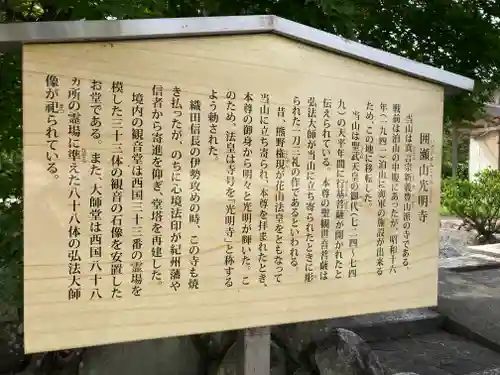 団瀬山光明寺
当山は真言宗新義豊山派の寺である。
戦前は泊山の中腹にあったが、昭和十六
年(一九四一)泊山に海軍の施設が出来る
ため、この地に移転した。
当山は聖武天皇の御代(七二四〜七四
九)の天平年間に行基菩薩が開かれたと
伝えられている。本尊の聖観世音菩薩は
弘法大師が当山に立ち寄られたときに彫
られた一刀三礼の作であるといわれる。
昔、熊野権現が花山法皇をともなって
当山に立ち寄られ、本尊を拝まれたとき、
本尊の御身から明々と光明が輝いた。こ
のため、法皇は寺号を「光明寺」と称する
よう勅された。
織田信長の伊勢攻めの時、この寺も焼
き払ったが、のちに心境法印が紀州藩や
信者から寄進を仰ぎ、堂塔を再建した。
境内の観音堂は西国三十三番の霊場を
模した三十三体の観音の石像を安置した
お堂である。また、大師堂は西国八十八
ヵ所の霊場に準えた八十八体の弘法大師
像が祀られている。